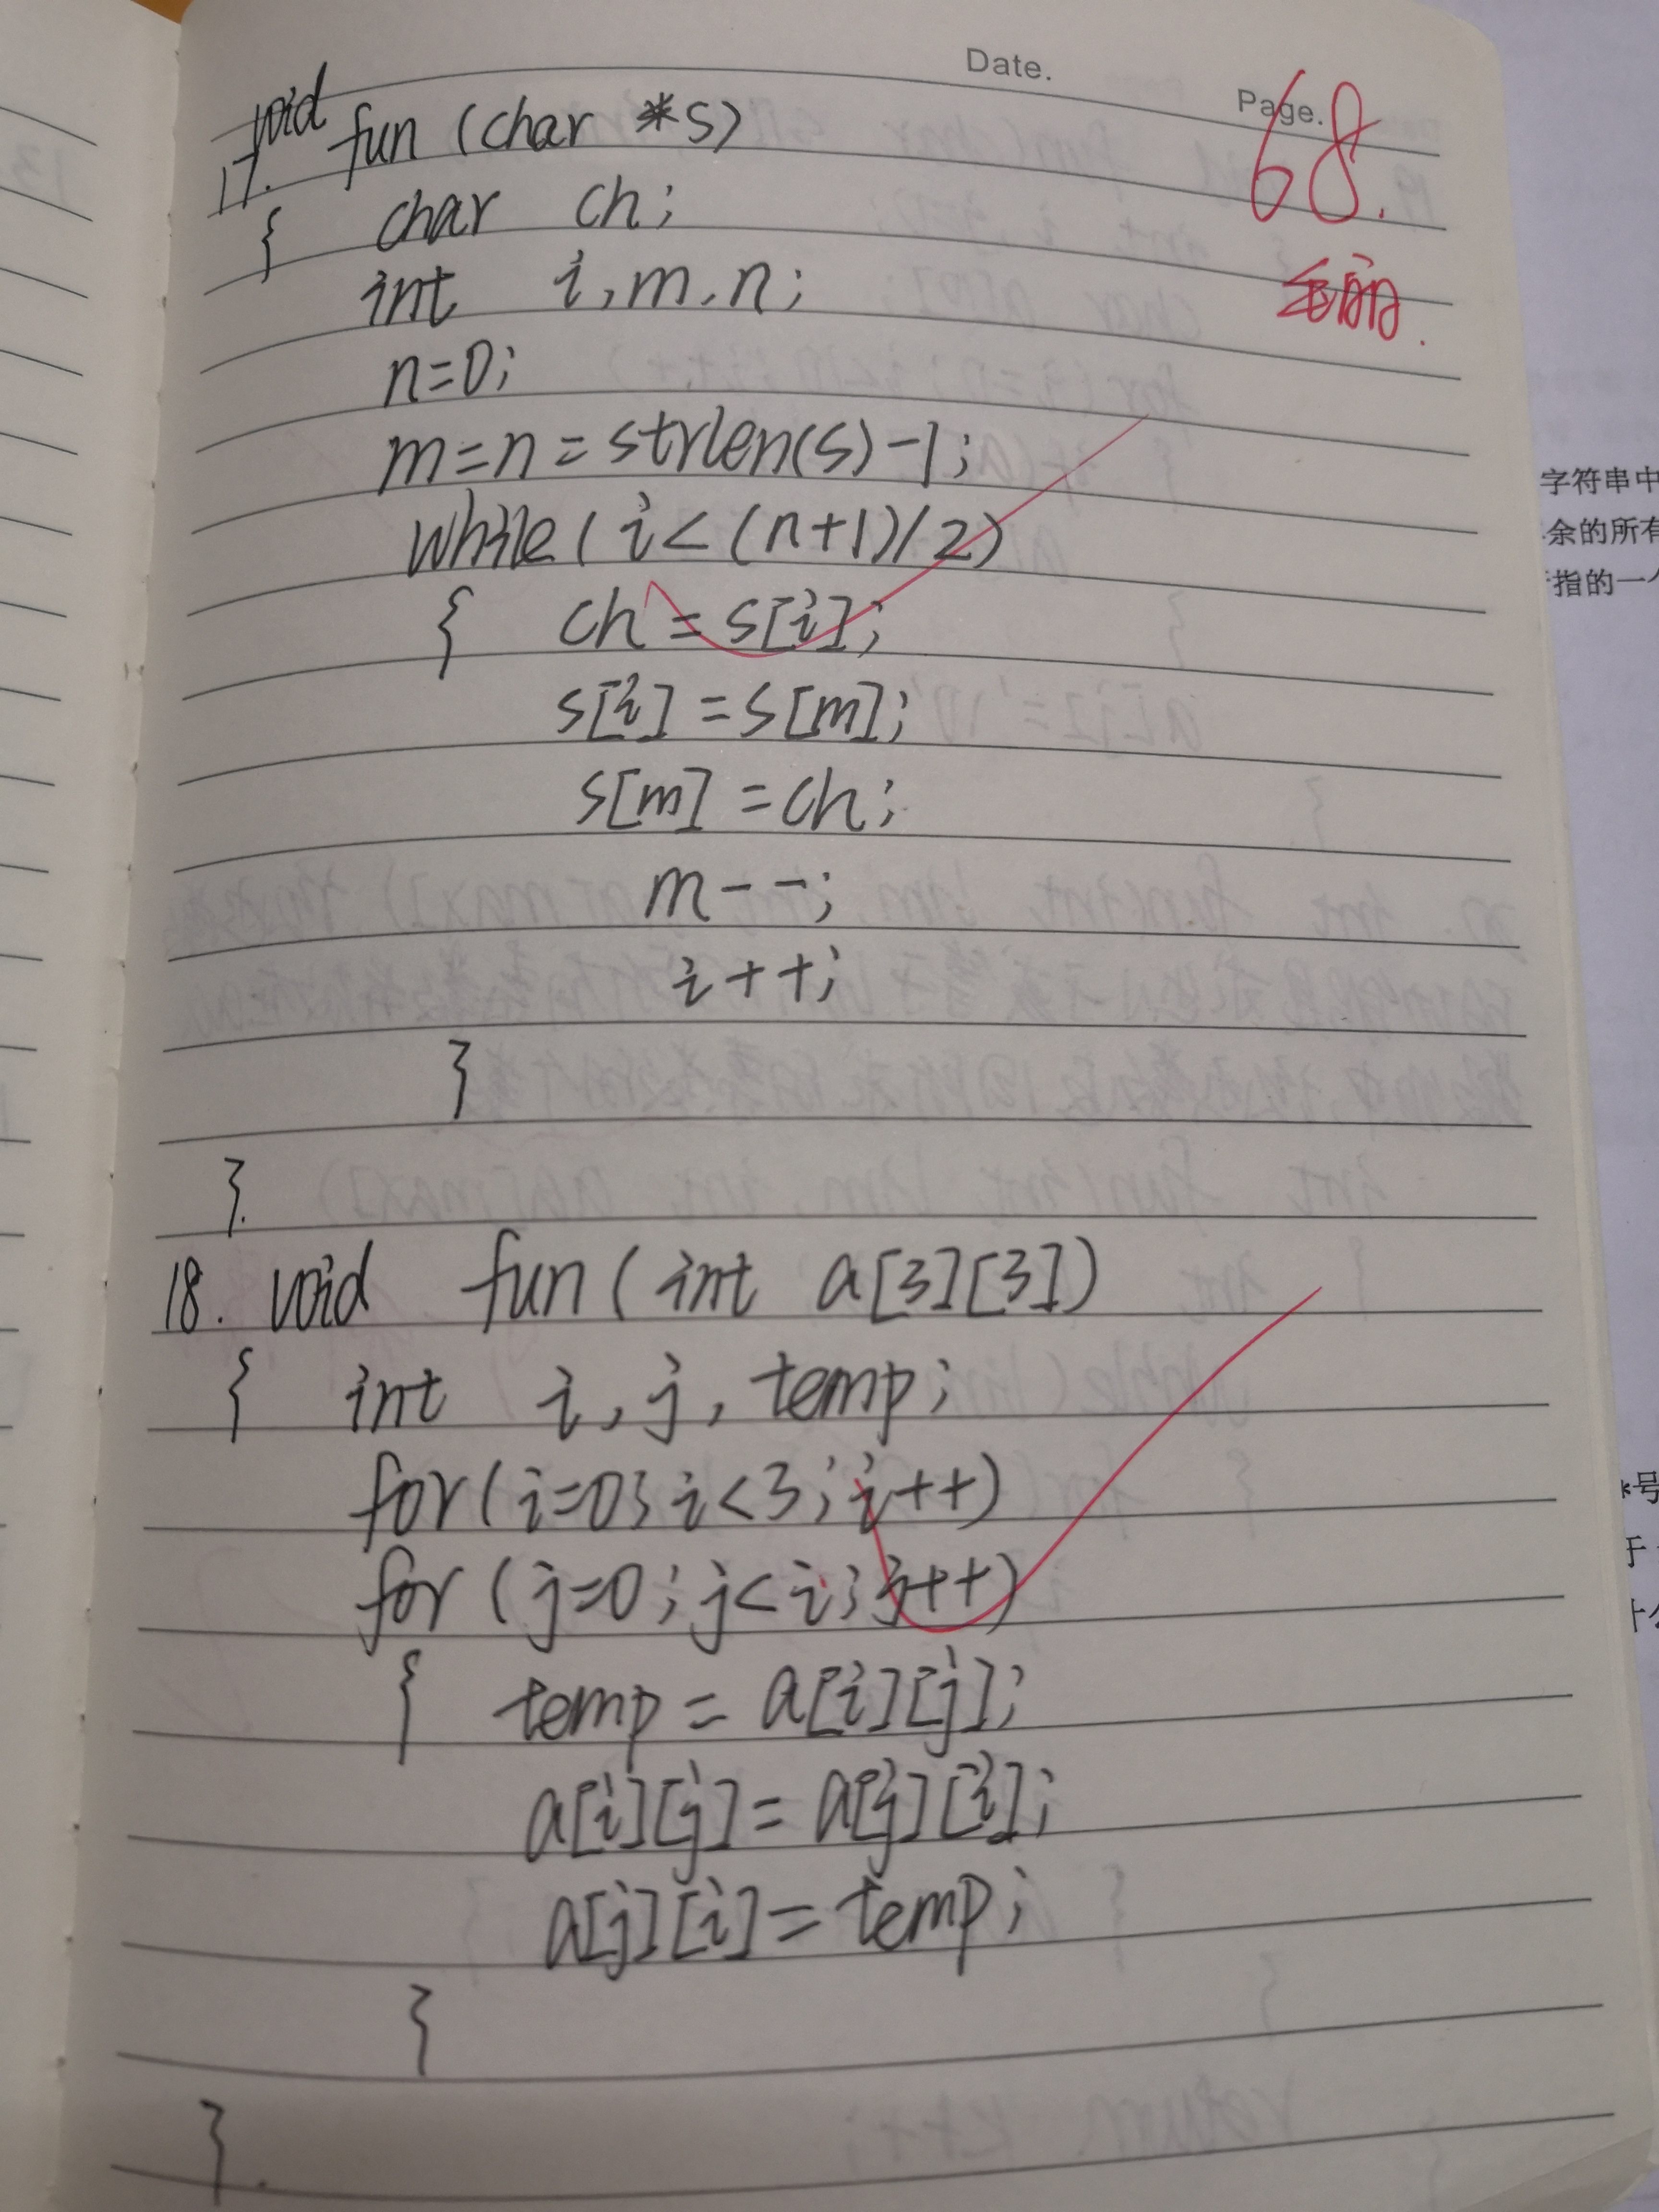 Date.
Page.
68.
void
17. fun (char *s)
{ char ch;
int i,m,n;
n=0;
m=n=strlen(s)-1;
while(i<(n+1)/2)
{ ch=s[i];
s[i]=s[m];
s[m]=ch;
m--;
i++;
}
}.
18. void fun(int a[3][3])
{ int i,j,temp;
for(i=0;i<3;i++)
for(j=0;j<i;j++)
{ temp=a[i][j];
a[i][j]=a[j][i];
a[j][i]=temp;
}
}.
字符串中
余的所有
指的一
号
于